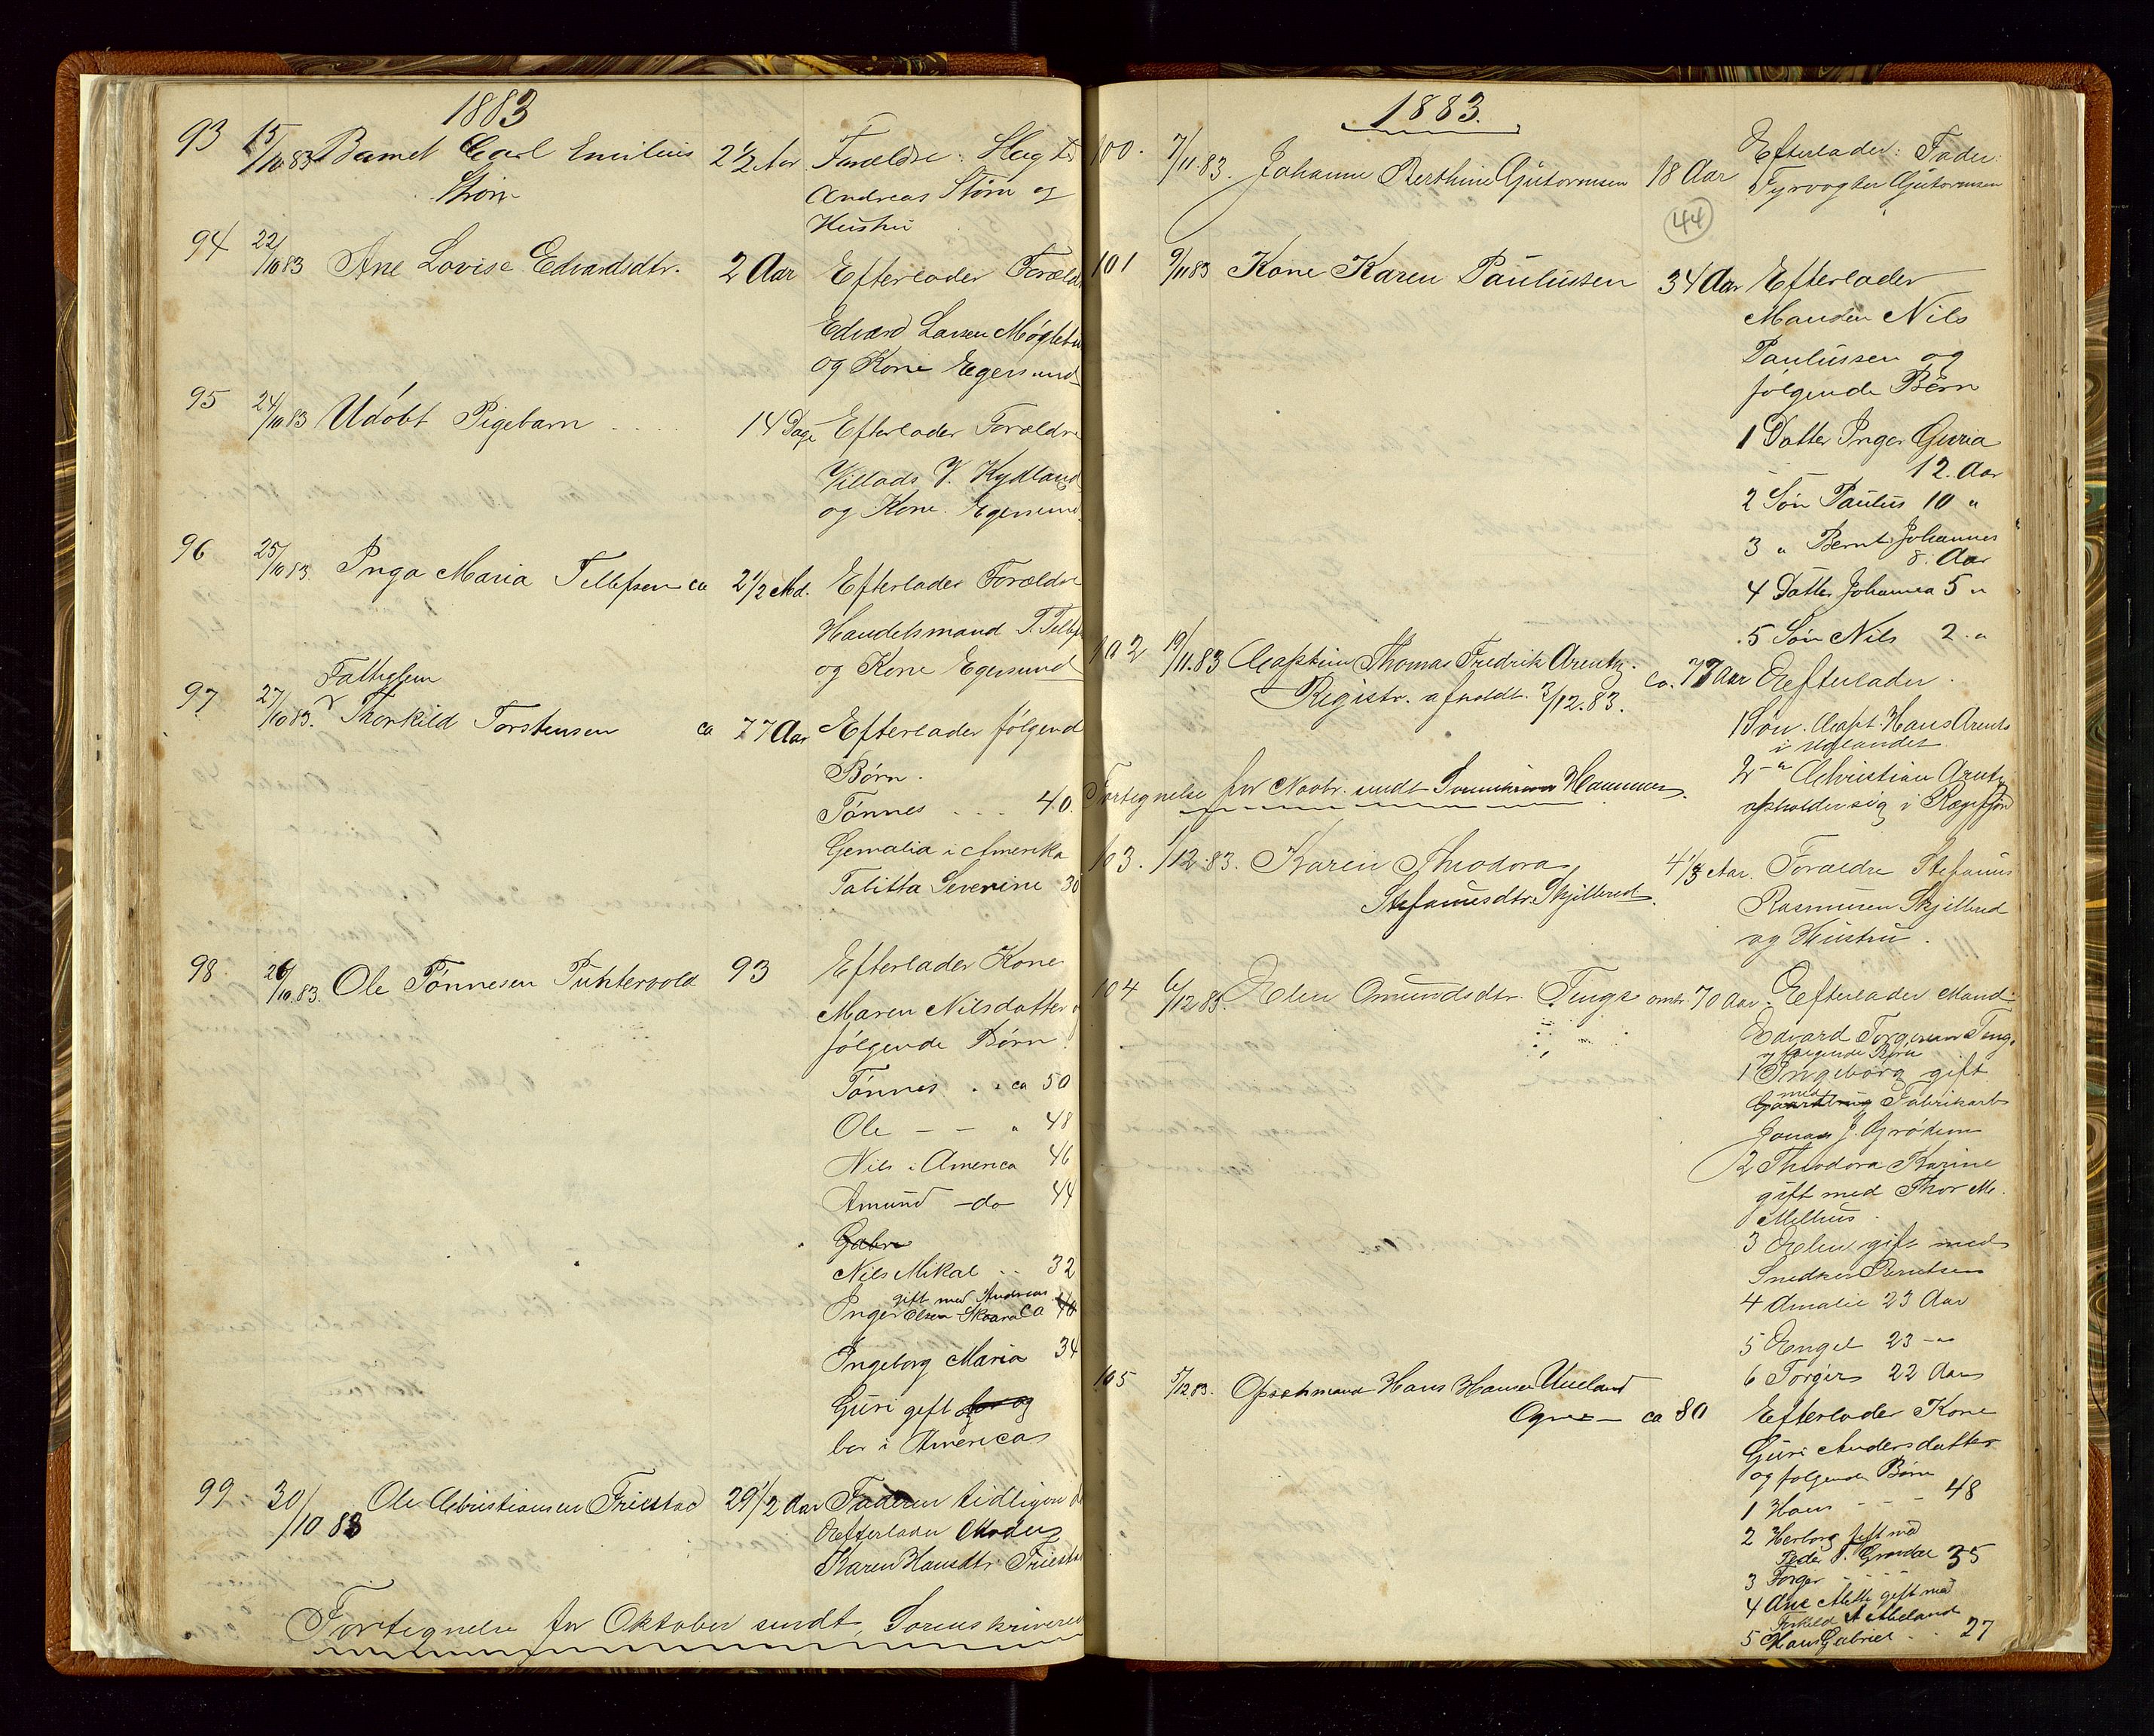 1883
93 15/10.83 Barnet Carl Emilius 2 1/2 Aar Forældre:
Storm Andreas Storm og
Hustru
94 22/10 83 Ane Lovise Edvardsdtr. 2 Aar Efterlader Foræld
Edvard Larsen
og Kone Egersund
95 24/10 83 Udöbt Pigebarn .... 14 Dage Efterlader Forældre
Villads V. Kydland
og Kone. Egersund
96 25/10 83. Inga Maria Tellefsen ca 2 1/2 Md. Efterlader Forældre
Handelsmand T. Tellefs
og Kone Egersund
Fattiglem
97. 27/10 83. Thorkild Torstensen ca 77 Aar Efterlader følgend
Börn.
Tönnes .... 40.
Gemalia i Amerika
Talitta Severine 30
98. 26/10.83. Ole Tönnesen Puntervold 93 Efterlader Kone
Maren Nilsdatter og
følgende Börn
Tönnes .. ca 50
Ole — — " 48
Nils i America 46
Amund — do 44
Gabri
Nils Mikal .. 32
gift med Andreas
Inger Olsen Skaara ca 40
Ingeborg Maria 34
Guri gift for og
bor i America
99 30/10 83 Ole Christiansen Friestad 29 1/2 Aar Faderen tidligere d
Efterlader Moder
Karen Hansdtr. Friestad
Fortegnelse for Oktober sendt Sorenskriveren
1883.
100. 7/11.83. Johanne Berthine Gutormsen 18 Aar Efterlader: Fader:
Fyrvogter Gutormsen
44
101 9/11 83 Kone Karen Paulussen 34 Aar Efterlader
Manden Nils
Paulussen og
følgende Börn
1 Datter Inger Guria
12. Aar
2 Sön Paulus 10 "
3 " Bernt Johannes
8. Aar
4 Datter Johanna 5 "
5 Sön Nils 2. "
102 19/11.83 Captein Thomas Fredrik Arentz. ca. 77 Aar Efterlader.
Registr. afholdt 3/12.83.
1 Sön. Capt. Hans Arents
i Udlandet
2 " Christian Arentz
opholder sig i Rægefjord
Fortegnelse for Novbr. sendt Hammer.
103. 1/12.83. Karen Theodora 4 1/3 Aar. Forældre Stefanus
Stefanusdtr. Skjilbred. Rasmussen Skjilbred
og Hustru.
104 6/12 83. Elen Amundsdtr. Tengs omtr. 70 Aar. Efterlader Mand
Edvard Torgersen Teng.
og følgende Börn
1 Ingeborg gift
med
Fabrikarb
Jonas J. Grödem
2 Theodora Karine
gift med Thor M.
Melhus.
3 Elen gift med
Snedker Berntsen
4 Amalie 23 Aar
5 Engel 23 — "
6 Torger 22 Aar
105 5/12 83. Hans Hansen Ueland
Ogne — ca 80 Efterlader Kone
Guri Andersdatter
og følgende Börn
1 Hans - - - 48
2 Herborg gift med
Peder T. Grøndal 35
3 Torger - - -
4 Ane Mette gift med
Torkild A. Mæland
5 Hans Gabriel .. 27